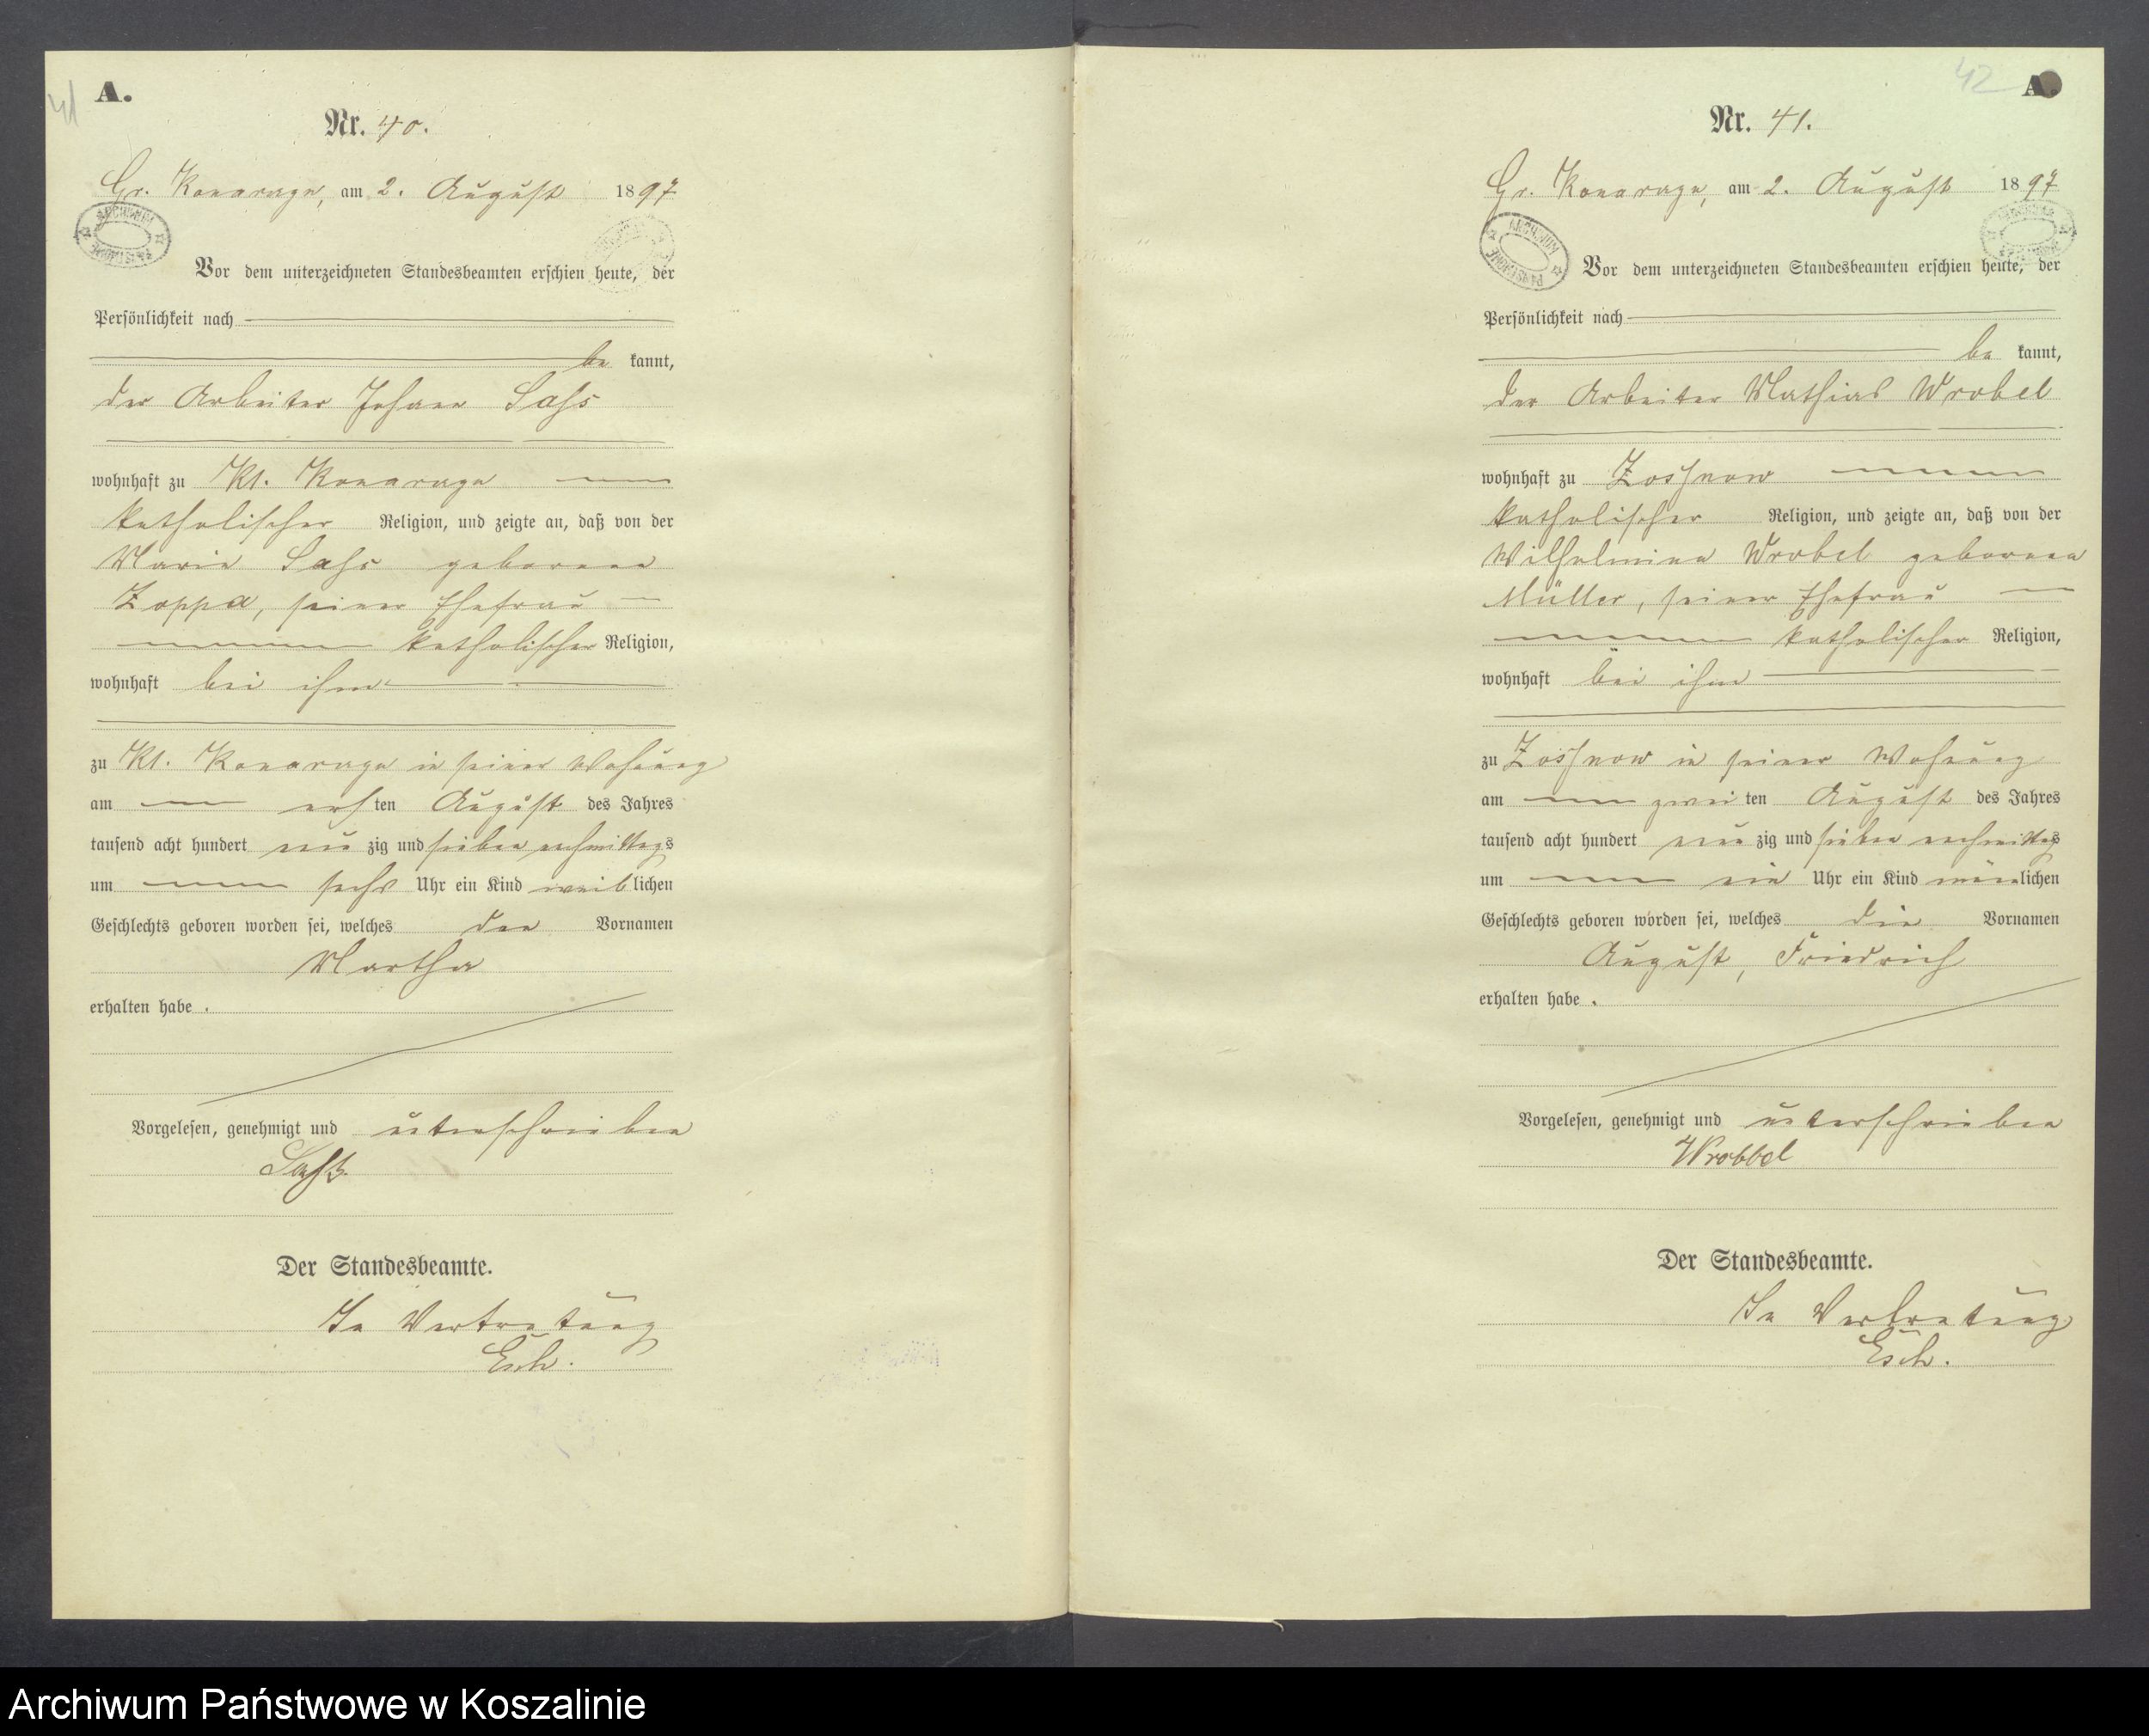 41
A.
Nr. 40.
Gr. Konarage, am 2. August 1897
ARCHIWUM PAŃSTWOWE
Vor dem unterzeichneten Standesbeamten erschien heute, der
Persönlichkeit nach
be kannt,
der Arbeiter Johann Sass
wohnhaft zu Kl. Konarage
katholischer Religion, und zeigte an, daß von der
Marie Sass geborenen
Zoppa, seiner Ehefrau
katholischer Religion,
wohnhaft bei ihm
zu Kl. Konarage in seiner Wohnung
am ersten August des Jahres
tausend acht hundert neun zig und sieben nachmittags
um sechs Uhr ein Kind weiblichen
Geschlechts geboren worden sei, welches den Vornamen
Martha
erhalten habe.
Vorgelesen, genehmigt und unterschrieben
Saß
Der Standesbeamte.
In Vertretung
Esch.
42
A.
Nr. 41.
Gr. Konarage, am 2. August 1897
ARCHIWUM PAŃSTWOWE
Vor dem unterzeichneten Standesbeamten erschien heute, der
Persönlichkeit nach
be kannt,
der Arbeiter Mathias Wrobel
wohnhaft zu Zossnow
katholischer Religion, und zeigte an, daß von der
Wilhelmine Wrobel geborenen
Müller, seiner Ehefrau
katholischer Religion,
wohnhaft bei ihm
zu Zossnow in seiner Wohnung
am zwei ten August des Jahres
tausend acht hundert neun zig und sieben nachmittags
um ein Uhr ein Kind männlichen
Geschlechts geboren worden sei, welches die Vornamen
August, Friedrich
erhalten habe.
Vorgelesen, genehmigt und unterschrieben
Wrobbel
Der Standesbeamte.
In Vertretung
Esch.
Archiwum Państwowe w Koszalinie